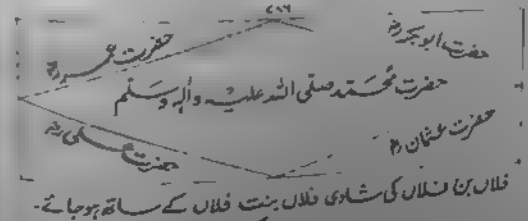 ۷۸۶
حضرت ابوبکرؓ
حضرت عمرؓ
حضرت محمد صلی اللہ علیہ وآلہ وسلم
حضرت عثمانؓ
حضرت علیؓ
فلاں بن فلاں کی شادی فلاں بنت فلاں کے ساتھ ہوجائے۔